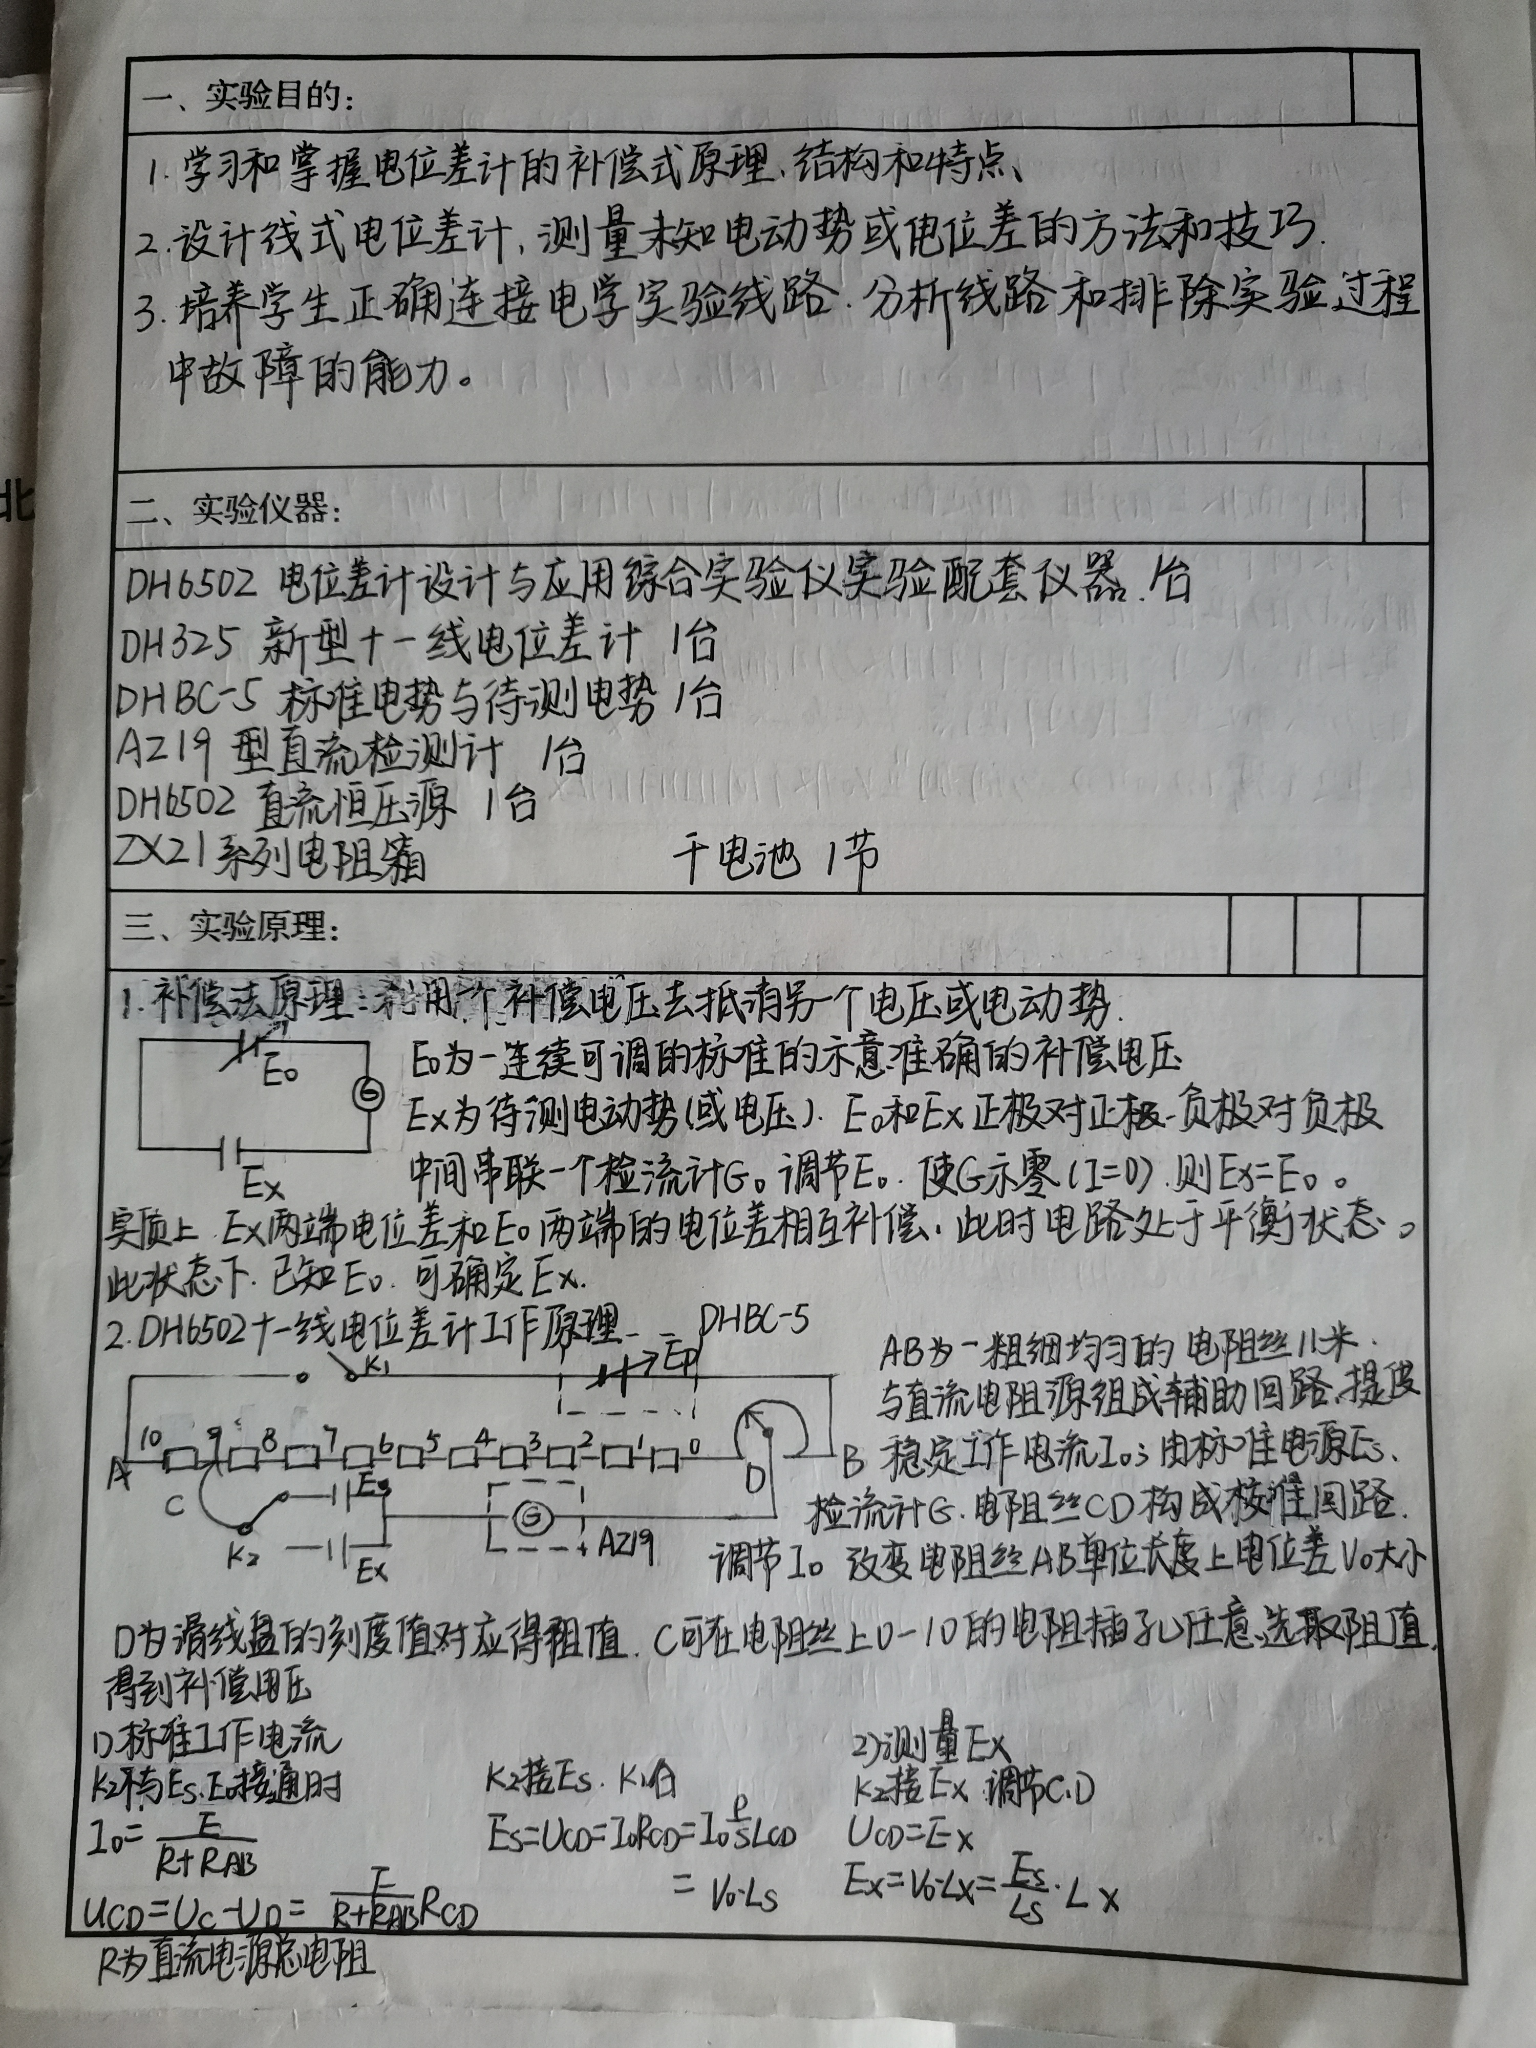 一、实验目的：
1. 学习和掌握电位差计的补偿式原理、结构和特点、
2. 设计线式电位差计，测量未知电动势或电位差的方法和技巧.
3. 培养学生正确连接电学实验线路.分析线路和排除实验过程
中故障的能力。
北
二、实验仪器：
DH6502 电位差计设计与应用综合实验仪实验配套仪器. 1台
DH325 新型十一线电位差计 1台
DHBC-5 标准电势与待测电势 1台
AZ19 型直流检测计 1台
DH6502 直流恒压源 1台
ZX21系列电阻箱 干电池 1节
三、实验原理：
1. 补偿法原理：利用一个补偿电压去抵消另一个电压或电动势.
E0
G
Ex
E0为一连续可调的标准的示意准确的补偿电压
Ex为待测电动势(或电压). E0和Ex正极对正极.负极对负极
中间串联一个检流计G。调节E0. 使G示零(I=0).则Ex=E0。
实质上.Ex两端电位差和E0两端的电位差相互补偿.此时电路处于平衡状态。
此状态下.已知E0.可确定Ex.
2. DH6502十一线电位差计工作原理
DHBC-5
K1
Ep
10 9 8 7 6 5 4 3 2 1 0
A
B
C
D
Es
K2
Ex
G
AZ19
AB为一粗细均匀的电阻丝11米.
与直流电阻源组成辅助回路.提供
稳定工作电流I0；由标准电源Es、
检流计G.电阻丝CD构成校准回路.
调节I0 改变电阻丝AB单位长度上电位差V0大小
D为滑线盘的刻度值对应得阻值.C可在电阻丝上0-10的电阻插孔任意选取阻值,
得到补偿电压
1)标准工作电流
K2不与Es.E0接通时
I0=E/(R+RAB)
UCD=UC-UD=E/(R+RAB)RCD
R为直流电源总电阻
K2接Es. K1合
Es=UCD=I0RCD=I0ρ/S LCD
=V0·LS
2)测量Ex
K2接Ex 调节C.D
UCD=Ex
Ex=V0·Lx=Es/Ls·Lx